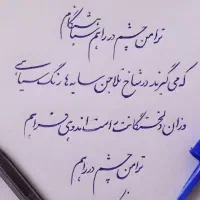 ترا من چشم در راهم شباهنگام
که می گیرند در شاخ تلاجن سایه ها رنگ سیاهی
وزان دلخستگانت راست اندوهی فراهم
ترا من چشم در راهم